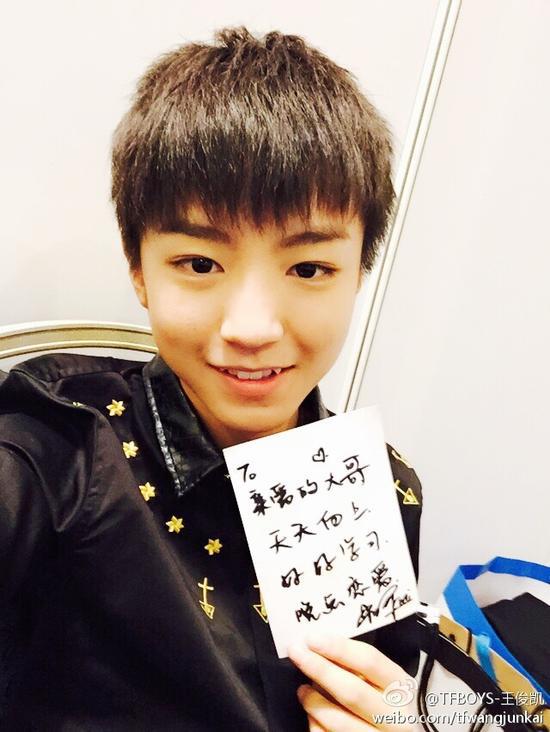 To ♡
亲爱的大哥
天天向上
好好学习
晚点恋爱
@TFBOYS-王俊凯
weibo.com/tfwangjunkai